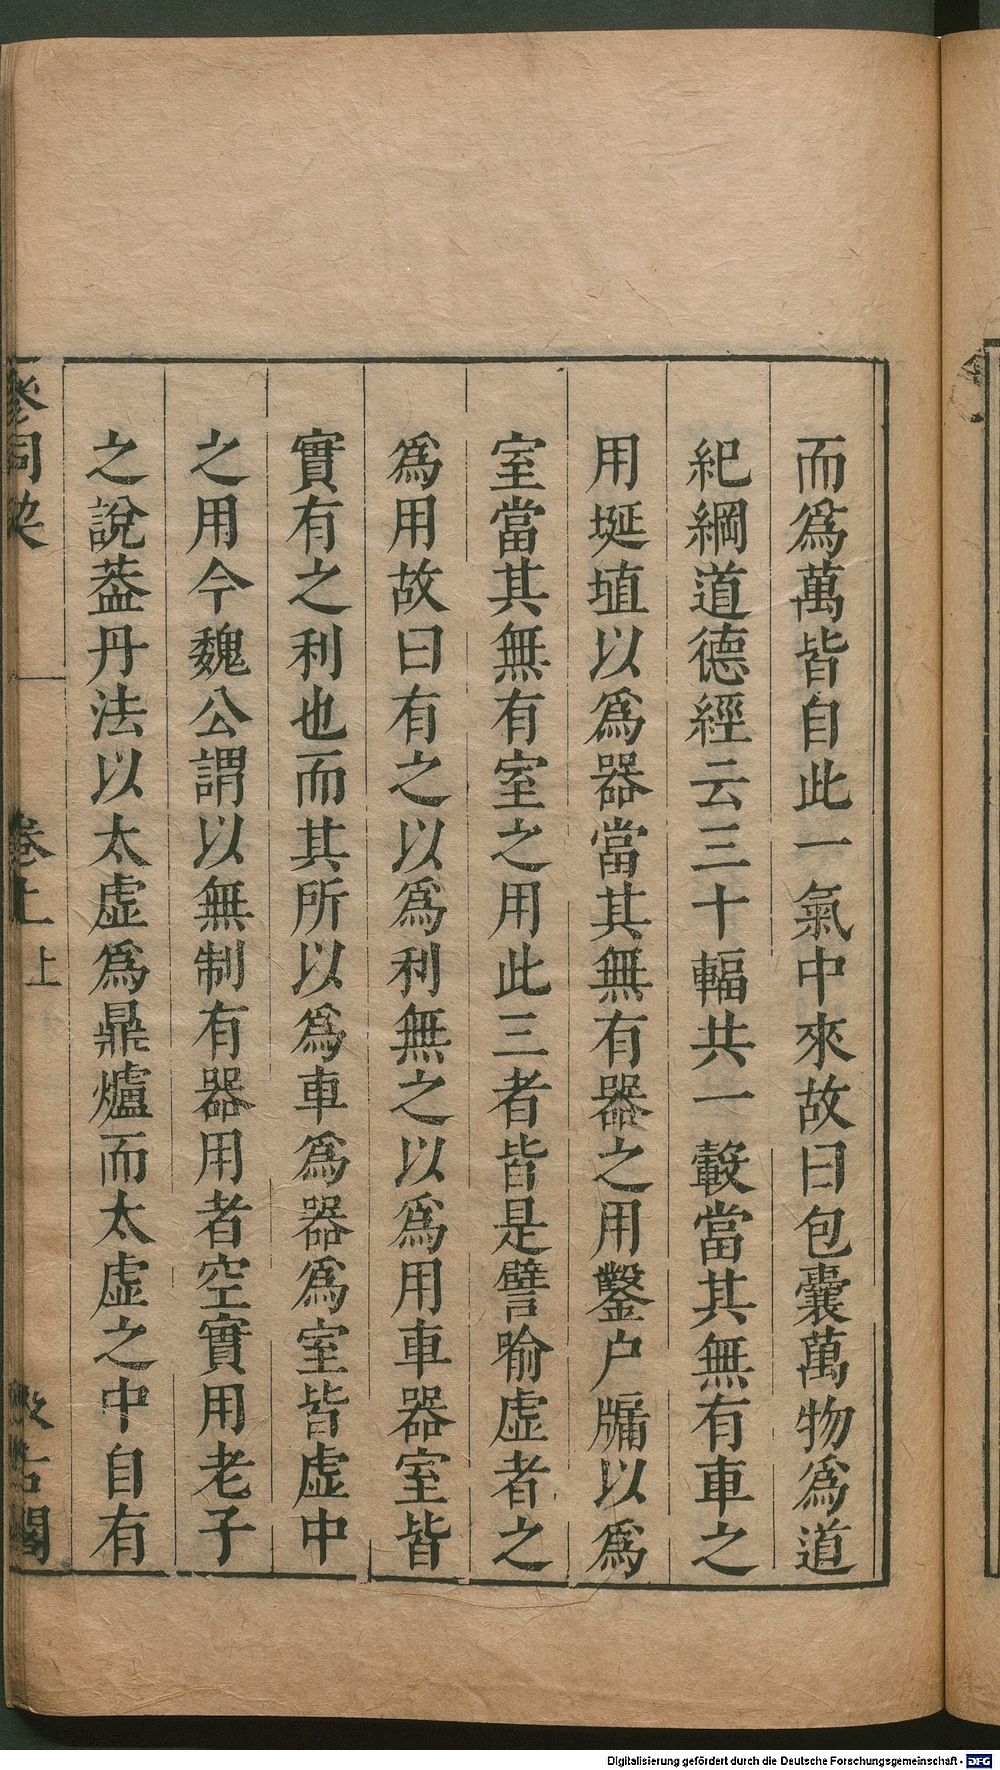 而爲萬皆自此一氣中來故曰包囊萬物爲道
紀綱道德經云三十輻共一轂當其無有車之
用埏埴以爲器當其無有器之用鑿户牖以爲
室當其無有室之用此三者皆是譬喻虛者之
爲用故曰有之以爲利無之以爲用車器室皆
實有之利也而其所以爲車爲器爲室皆虛中
之用今魏公謂以無制有器用者空實用老子
之說葢丹法以太虛爲鼎爐而太虛之中自有
參同契
卷上
上
汲古閣
Digitalisierung gefördert durch die Deutsche Forschungsgemeinschaft - DFG